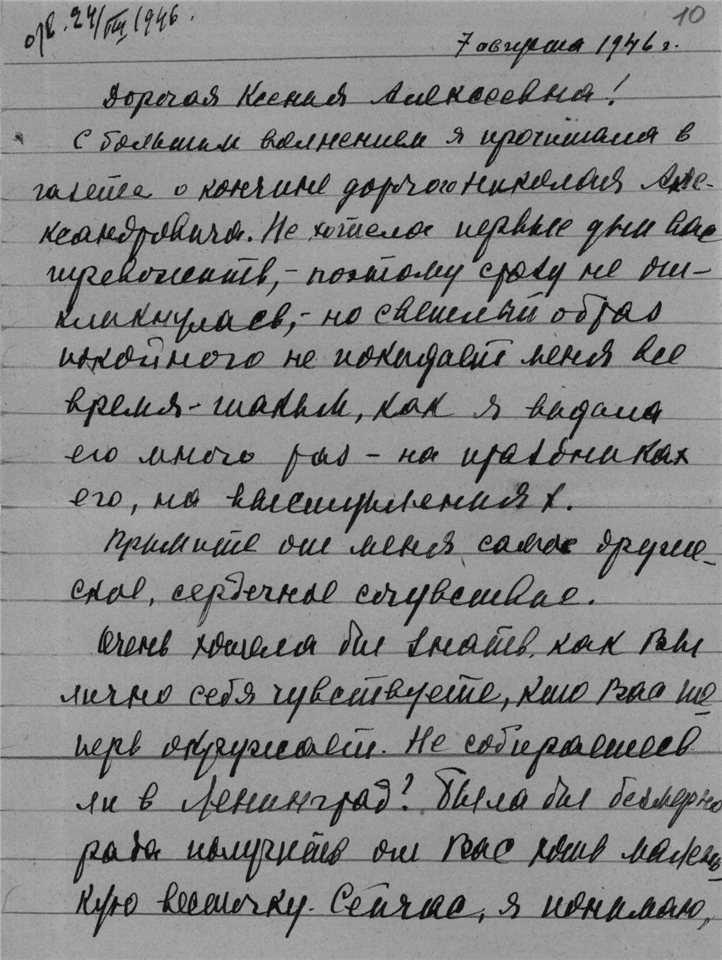 отв. 24/VIII 1946.
10
7 августа 1946 г.
Дорогая Ксения Алексеевна!
С большим волнением я прочитала в
газете о кончине дорогого Николая Але-
ксандровича. Не хотела первые дни вас
тревожить, – поэтому сразу не от-
кликнулась, – но светлый образ
покойного не покидает меня все
время – таким, как я видала
его много раз – на праздниках
его, на выступлениях.
Примите от меня самое друже-
ское, сердечное сочувствие.
Очень хотела бы знать, как Вы
лично себя чувствуете, кто Вас те
перь окружает. Не собираетесь
ли в Ленинград? Была бы безмерно
рада получить от Вас хоть малень
кую весточку. Сейчас, я понимаю,